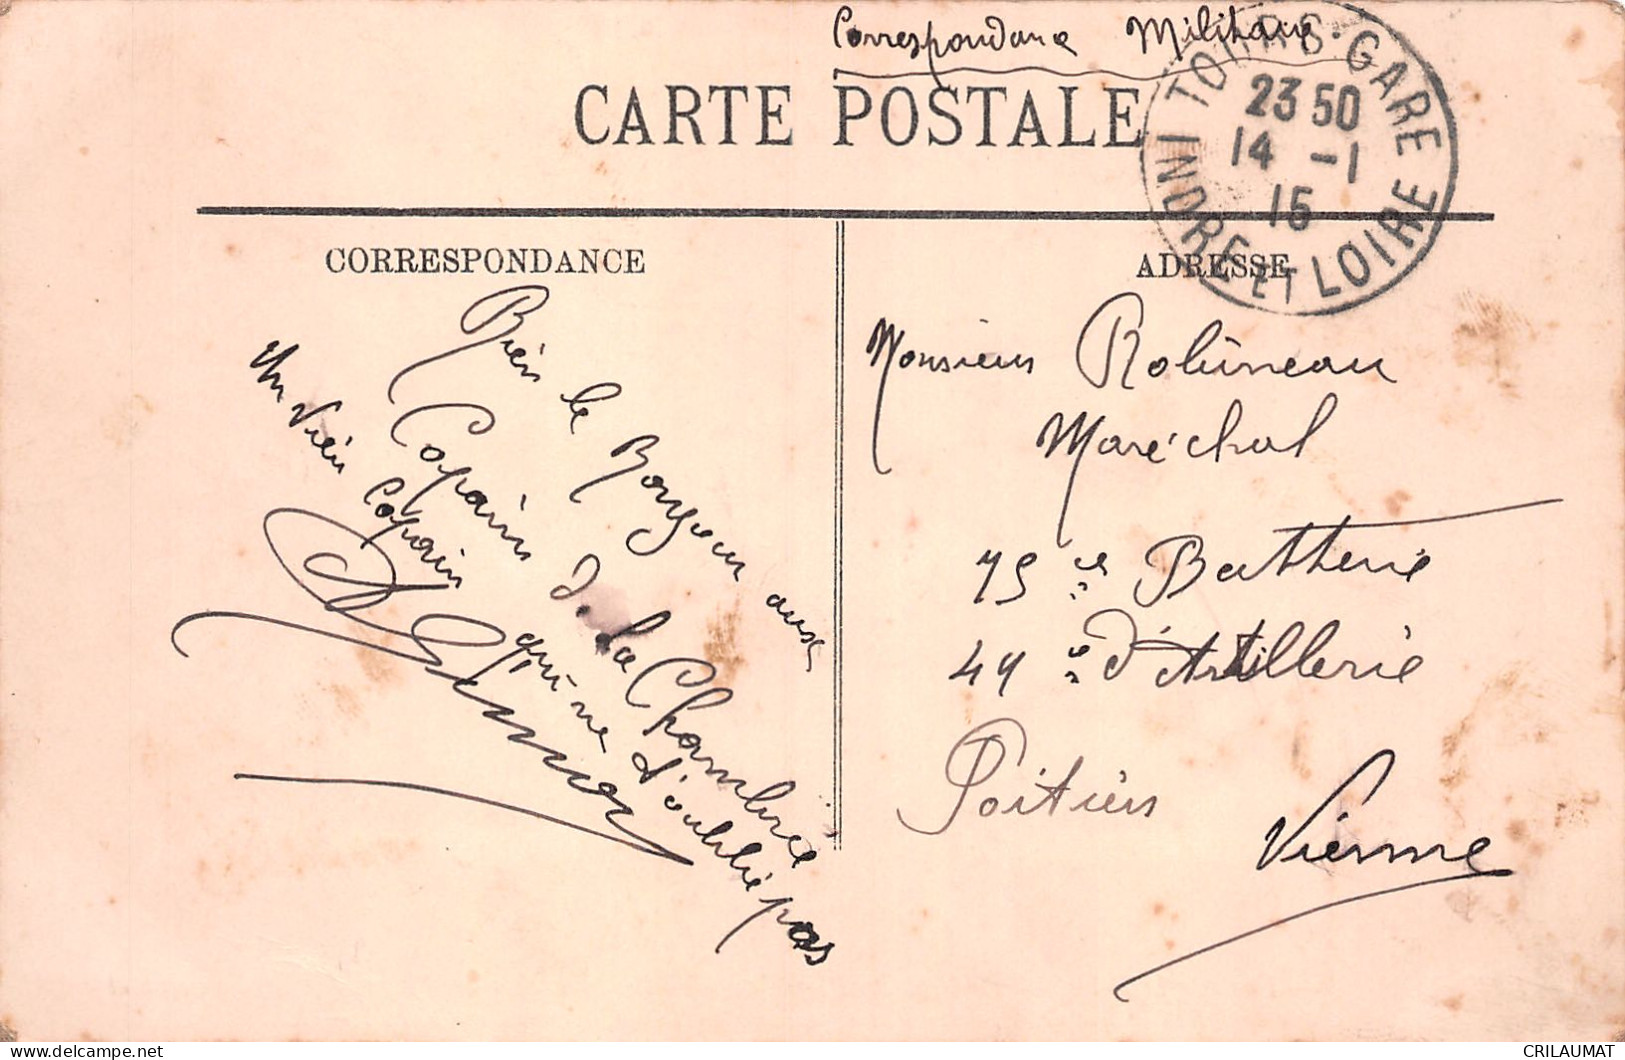 Correspondance Militaire
CARTE POSTALE
TOURS-GARE
23 50
14 -1
15
INDRE ET LOIRE
CORRESPONDANCE
ADRESSE
Bien le Bonjour aux
Copains de la Chambrée
Un Vieu Copain qui ne l'oublie pas
Monsieur Robineau
Maréchal
75 e Batterie
49 e d'Artillerie
Poitiers
Vienne
CRILAUMAT
delcampe.net